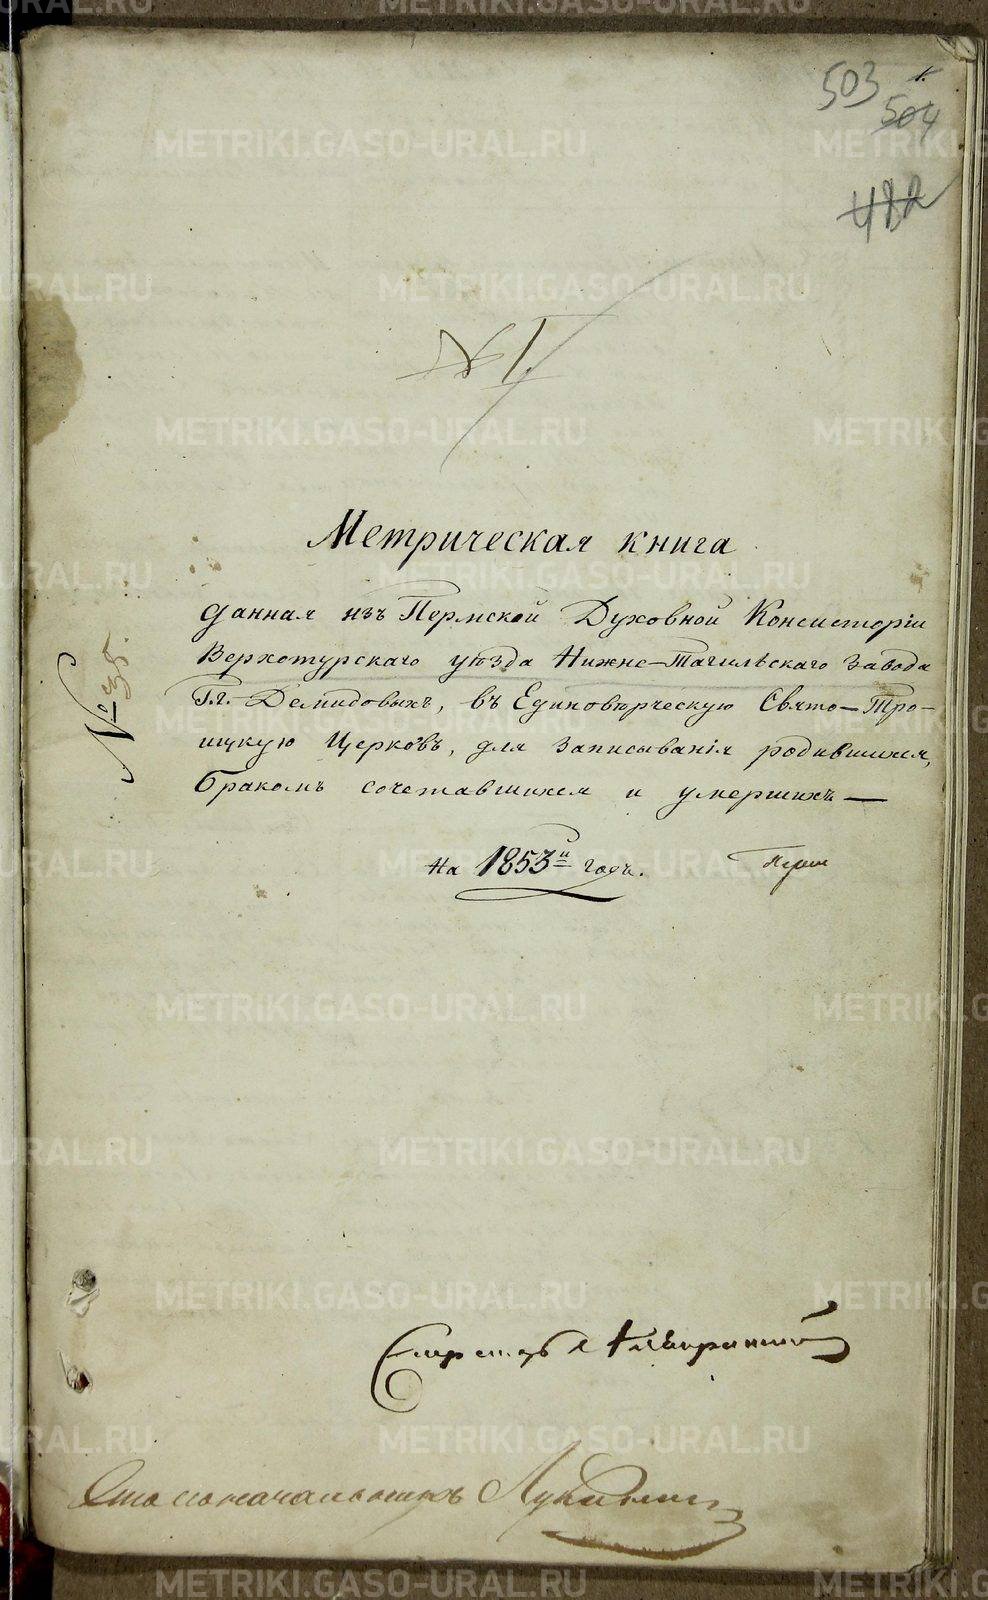 503 1.
504
482
№ 1.
Метрическая книга
данная изъ Пермской Духовной Консисторіи
Верхотурскаго уѣзда Нижне-Тагильскаго завода
Г.г. Демидовыхъ, въ Единовѣрческую Свято-Тро-
ицкую Церковь, для записыванія родившихся,
бракомъ сочетавшихся и умершихъ —
На 1853й годъ.
№ 35.
Секретарь
Столоначальникъ
METRIKI.GASO-URAL.RU